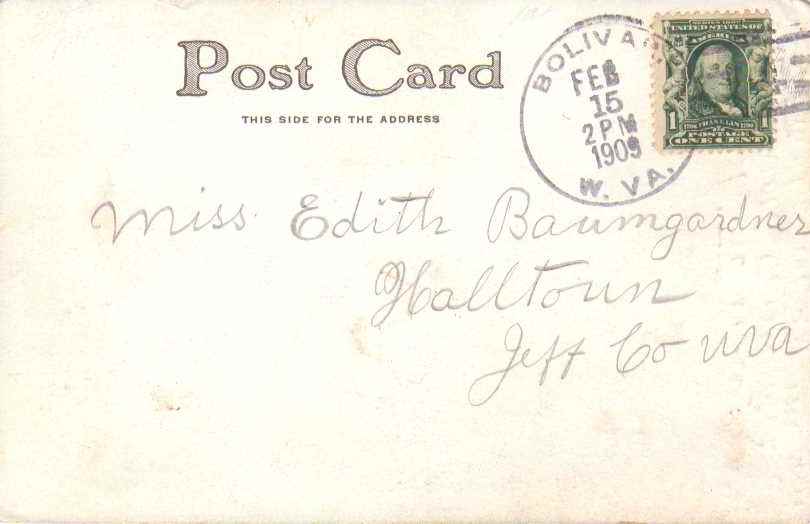 Post Card
THIS SIDE FOR THE ADDRESS
BOLIVA
FEB
15
2 PM
1909
W. VA.
SERIES 1902
UNITED STATES OF
AMERI
1
FRANKLIN
1
POSTAGE
ONE CENT
Miss Edith Baumgardner
Halltown
Jeff Co WVa